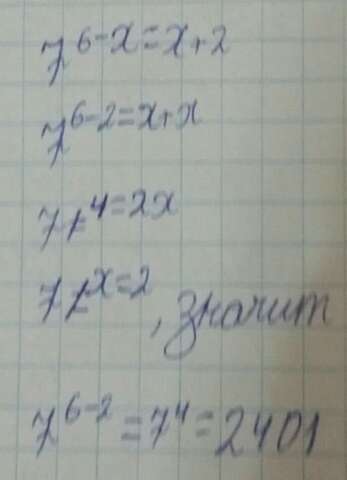 7^6-x=x+2
7^6-2=x+x
7^4=2x
7^x=2, значит
7^6-2=7^4=2401